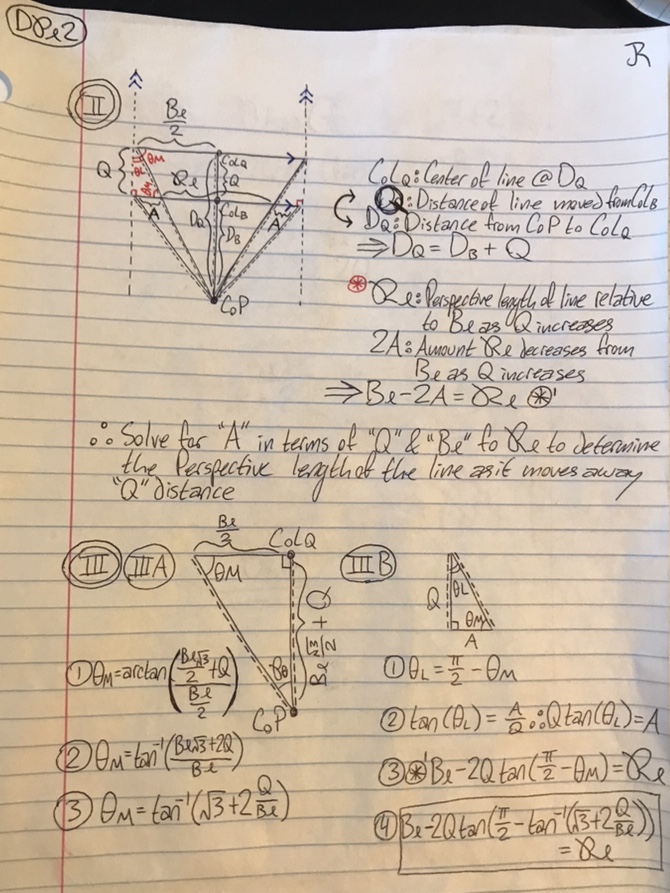 DPe2
R
II
Be/2
Q
θM
θL
θM
Re
CoLQ
Q
A
DQ
CoLB
DB
A
CoP
CoLQ: Center of line @ DQ
Q: Distance of line moved from CoLB
DQ: Distance from CoP to CoLQ
⇒ DQ = DB + Q
⊛ Re: Perspective length of line relative
to Be as Q increases
2A: Amount Re decreases from
Be as Q increases
⇒ Be-2A = Re ⊛'
∴ Solve for "A" in terms of "Q" & "Be" to Re to determine
the Perspective length of the line as it moves away
"Q" distance
III IIIA
Be/2
CoLQ
θM
Be√3/2 + Q
CoP
① θM = arctan((Be√3/2 + Q)/(Be/2))
② θM = tan⁻¹((Be√3+2Q)/Be)
③ θM = tan⁻¹(√3+2Q/Be)
IIIB
Q
θL
θM
A
① θL = π/2 - θM
② tan(θL) = A/Q ∴ Qtan(θL) = A
③ ⊛' Be-2Qtan(π/2-θM) = Re
④ Be-2Qtan(π/2-tan⁻¹(√3+2Q/Be))
= Re